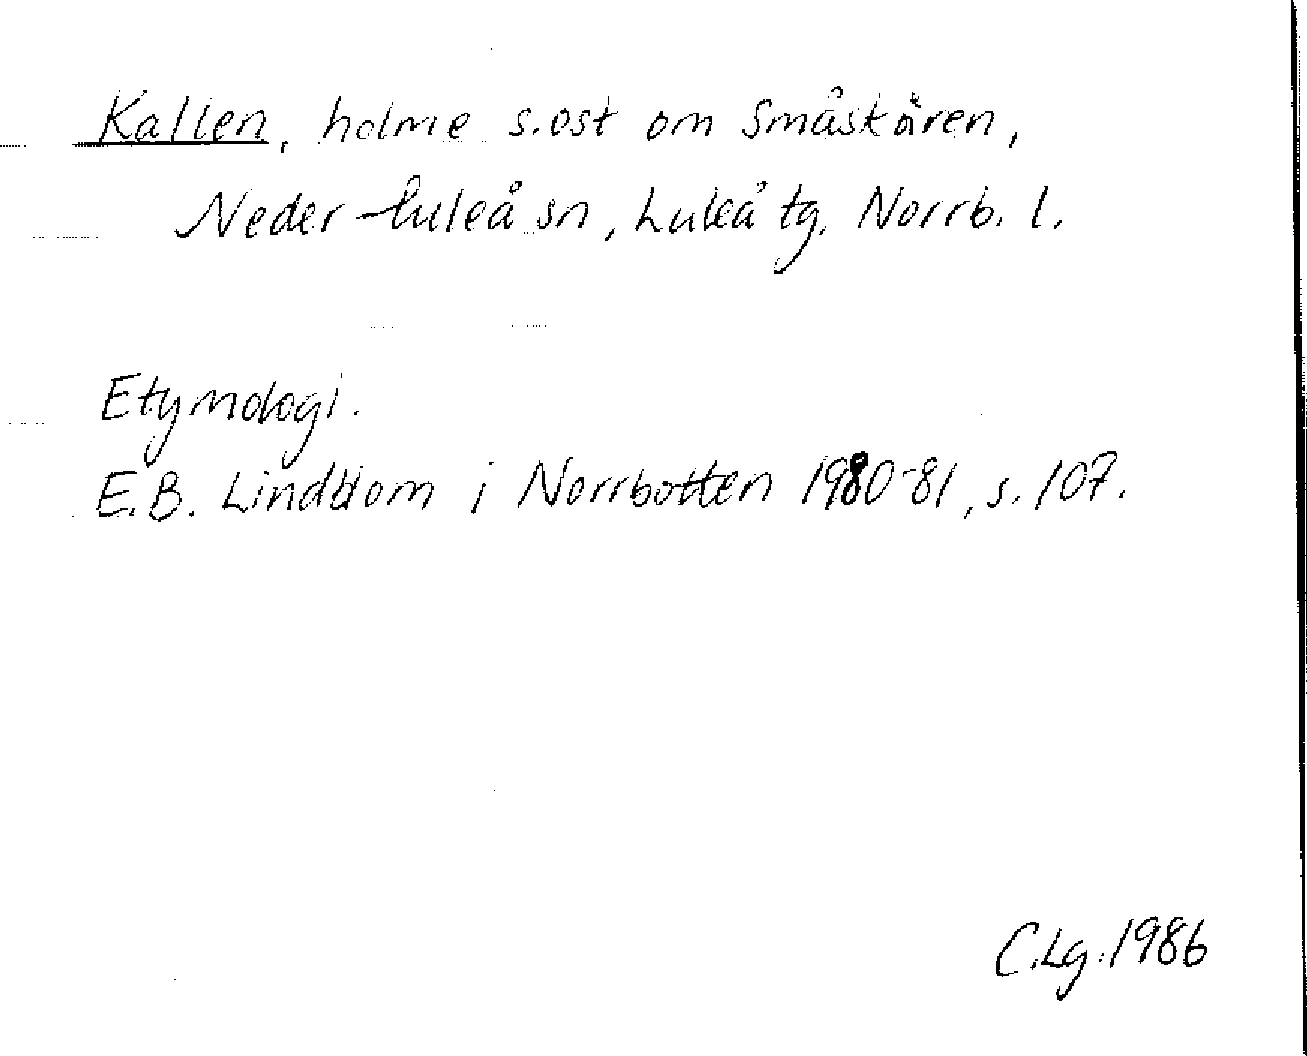 Kallen, holme s.ost om Småskären,
Neder-Luleå sn, Luleå tg, Norrb. l.
Etymologi.
E.B. Lindblom i Norrbotten 1980-81, s. 107.
C.Lg. 1986